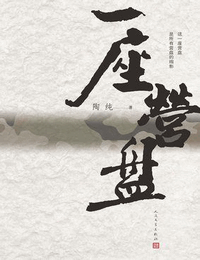 一座營盘
陶纯 著
一座营盘
是所有营盘的缩影
人民文学出版社